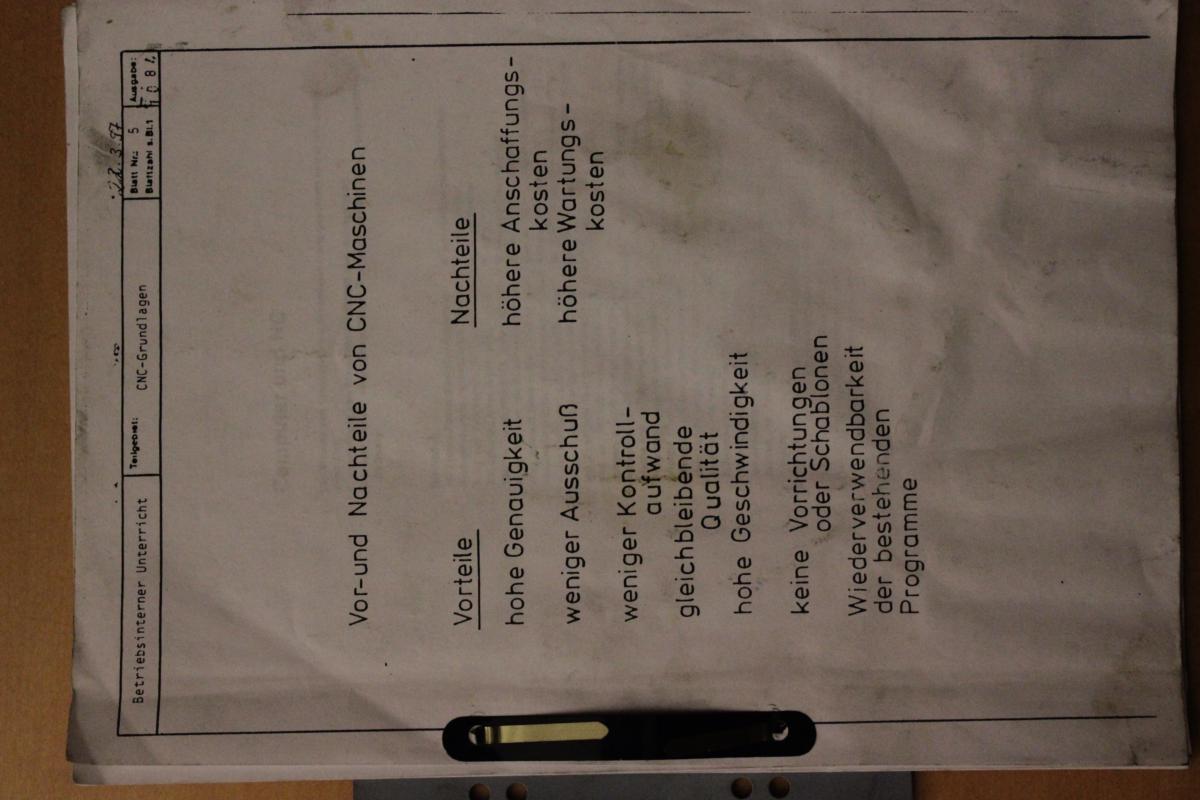 22.3.97
Betriebsinterner Unterricht
Teilgebiet:
CNC-Grundlagen
Blatt Nr.: 5
Blattzahl s.Bl.1
Ausgabe:
Vor-und Nachteile von CNC-Maschinen
Vorteile
Nachteile
hohe Genauigkeit
höhere Anschaffungs-
kosten
weniger Ausschuß
höhere Wartungs-
kosten
weniger Kontroll-
aufwand
gleichbleibende
Qualität
hohe Geschwindigkeit
keine Vorrichtungen
oder Schablonen
Wiederverwendbarkeit
der bestehenden
Programme